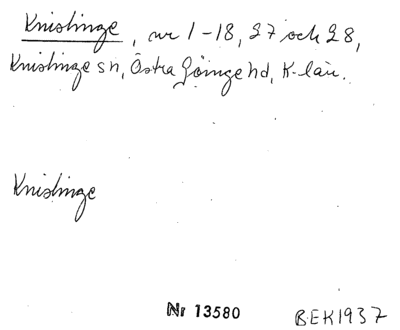 Knislinge, nr 1-18, 27 och 28,
Knislinge sn, Östra Göinge hd, K-län.
Knislinge
Nr 13580
BEK1937